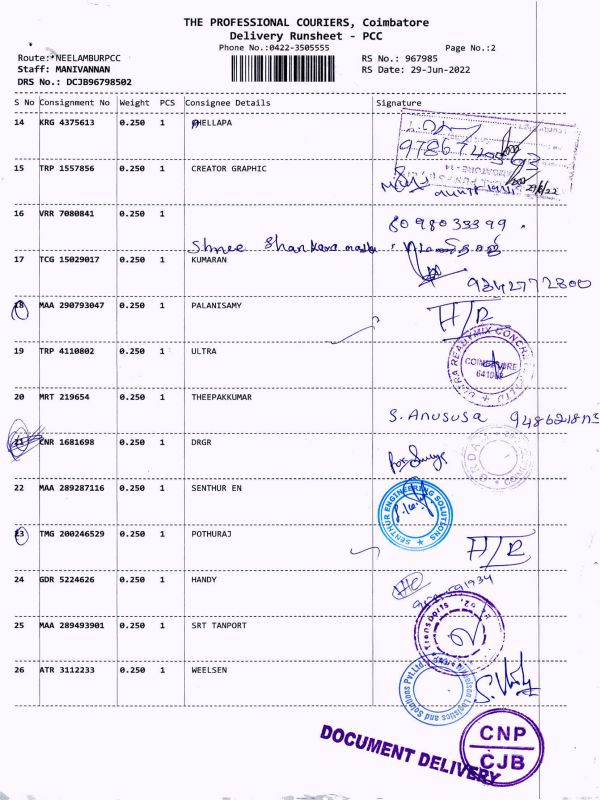 THE PROFESSIONAL COURIERS, Coimbatore
Delivery Runsheet - PCC
Phone No.:0422-3505555
Page No.:2
Route:*NEELAMBURPCC
RS No.: 967985
Staff: MANIVANNAN
RS Date: 29-Jun-2022
DRS No.: DCJB96798502
S No Consignment No Weight PCS Consignee Details Signature
14 KRG 4375613 0.250 1 CHELLAPA
15 TRP 1557856 0.250 1 CREATOR GRAPHIC
16 VRR 7080841 0.250 1
8098033399.
Shree Shankara
17 TCG 15029017 0.250 1 KUMARAN
9342772800
18 MAA 290793047 0.250 1 PALANISAMY H/R
19 TRP 4110802 0.250 1 ULTRA
ULTRA READYMIX CONCRETE
COIMBATORE
20 MRT 219654 0.250 1 THEEPAKKUMAR
S. Anususa
21 CNR 1681698 0.250 1 DRGR
22 MAA 289287116 0.250 1 SENTHUR EN
SENTHUR ENGINEERING SOLUTIONS
23 TMG 200246529 0.250 1 POTHURAJ H/R
24 GDR 5224626 0.250 1 HANDY
25 MAA 289493901 0.250 1 SRT TANPORT
Transports
26 ATR 3112233 0.250 1 WEELSEN
Logistics and Solutions Pvt.Ltd.
DOCUMENT DELIVERY
CNP
CJB